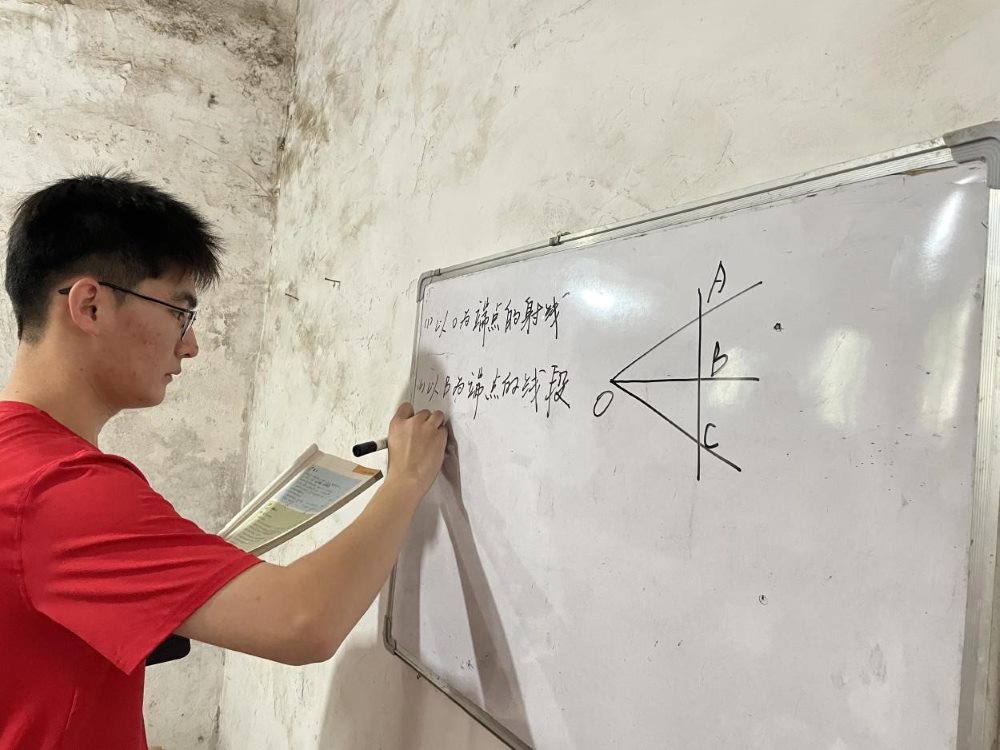 (1)以O为端点的射线
(2)以B为端点的线段
A
B
O
C